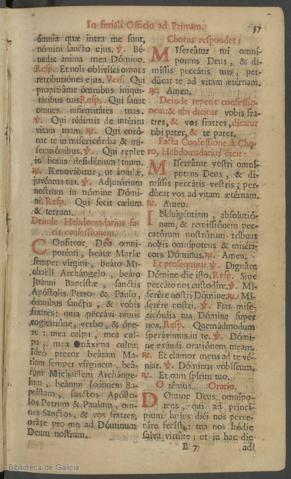 In feriali Officio ad Primam.
37
omnia quæ intra me sunt,
nomini sancto ejus. ℣. Bé-
nedic ánima mea Dómino.
Resp. Et noli oblivísci omnes
retributiónes ejus. Vers. Qui
propitiátur ómnibus iniqui-
tátibus tuis. Resp. Qui sanat
omnes infirmitátes tuas.
℣. Qui rédimit de intéritu
vitam tuam. ℟. Qui coró-
nat te in misericórdia & mi-
seratiónibus. ℣. Qui replet
in bonis desidérium tuum.
℟. Renovábitur, ut áquilæ,
juvéntus tua. ℣. Adjutórium
nostrum in nómine Dómi-
ni. Resp. Qui fecit cælum
& terram.
Deinde Hebdomadarius fa-
cit confessionem.
COnfíteor Deo omni-
poténti, beátæ Maríæ
semper vírgini, beáto Mi-
chaéli Archángelo, beáto
Joánni Baptístæ, sanctis
Apóstolis Petro & Paulo,
ómnibus Sanctis, & vobis
fratres: quia peccávi nimis
cogitatióne, verbo, & ópe-
re: mea culpa, mea cul-
pa, mea máxima culpa.
Ideo precor beátam Ma-
ríam semper vírginem, beá-
tum Michaélem Archánge-
lum, beátum Joánnem Ba-
ptístam, sanctos Apósto-
los Petrum & Paulum, om-
nes Sanctos, & vos fratres,
oráte pro me ad Dóminum
Deum nostrum.
Chorus respondet:
MIsereátur tui omní-
potens Deus, & di-
míssis peccátis tuis, per-
dúcat te ad vitam ætérnam.
℟. Amen.
Deinde repetit confessio-
nem: & ubi dicitur vobis fra-
tres, & vos fratres, dicatur
tibi pater, & te pater.
Facta Confessione à Cho-
ro, Hebdomadarius dicit:
MIsereátur vestri omní-
potens Deus, & di-
míssis peccátis vestris, per-
dúcat vos ad vitam ætérnam.
℟. Amen.
INdulgéntiam, absolutió-
nem, & remissiónem pec-
catórum nostrórum tríbuat
nobis omnípotens & misérí-
cors Dóminus. ℟. Amen.
Et prosequitur ℣. Dignáre
Dómine die isto. Resp. Sine
peccáto nos custodíre. ℣. Mi-
serére nostri Dómine. ℟. Mi-
serére nostri. ℣. Fiat mise-
ricórdia tua Dómine super
nos. Resp. Quemádmodum
sperávimus in te. ℣. Dómi-
ne exáudi oratiónem meam.
℟. Et clamor meus ad te vé-
niat. ℣. Dóminus vobíscum.
℟. Et cum spíritu tuo.
Orémus. Oratio.
DOmine Deus omnípo-
tens, qui ad princí-
pium hujus diéi nos perve-
níre fecísti: tua nos hódie
salva virtúte; ut in hac die
E 7
ad
Biblioteca de Galicia